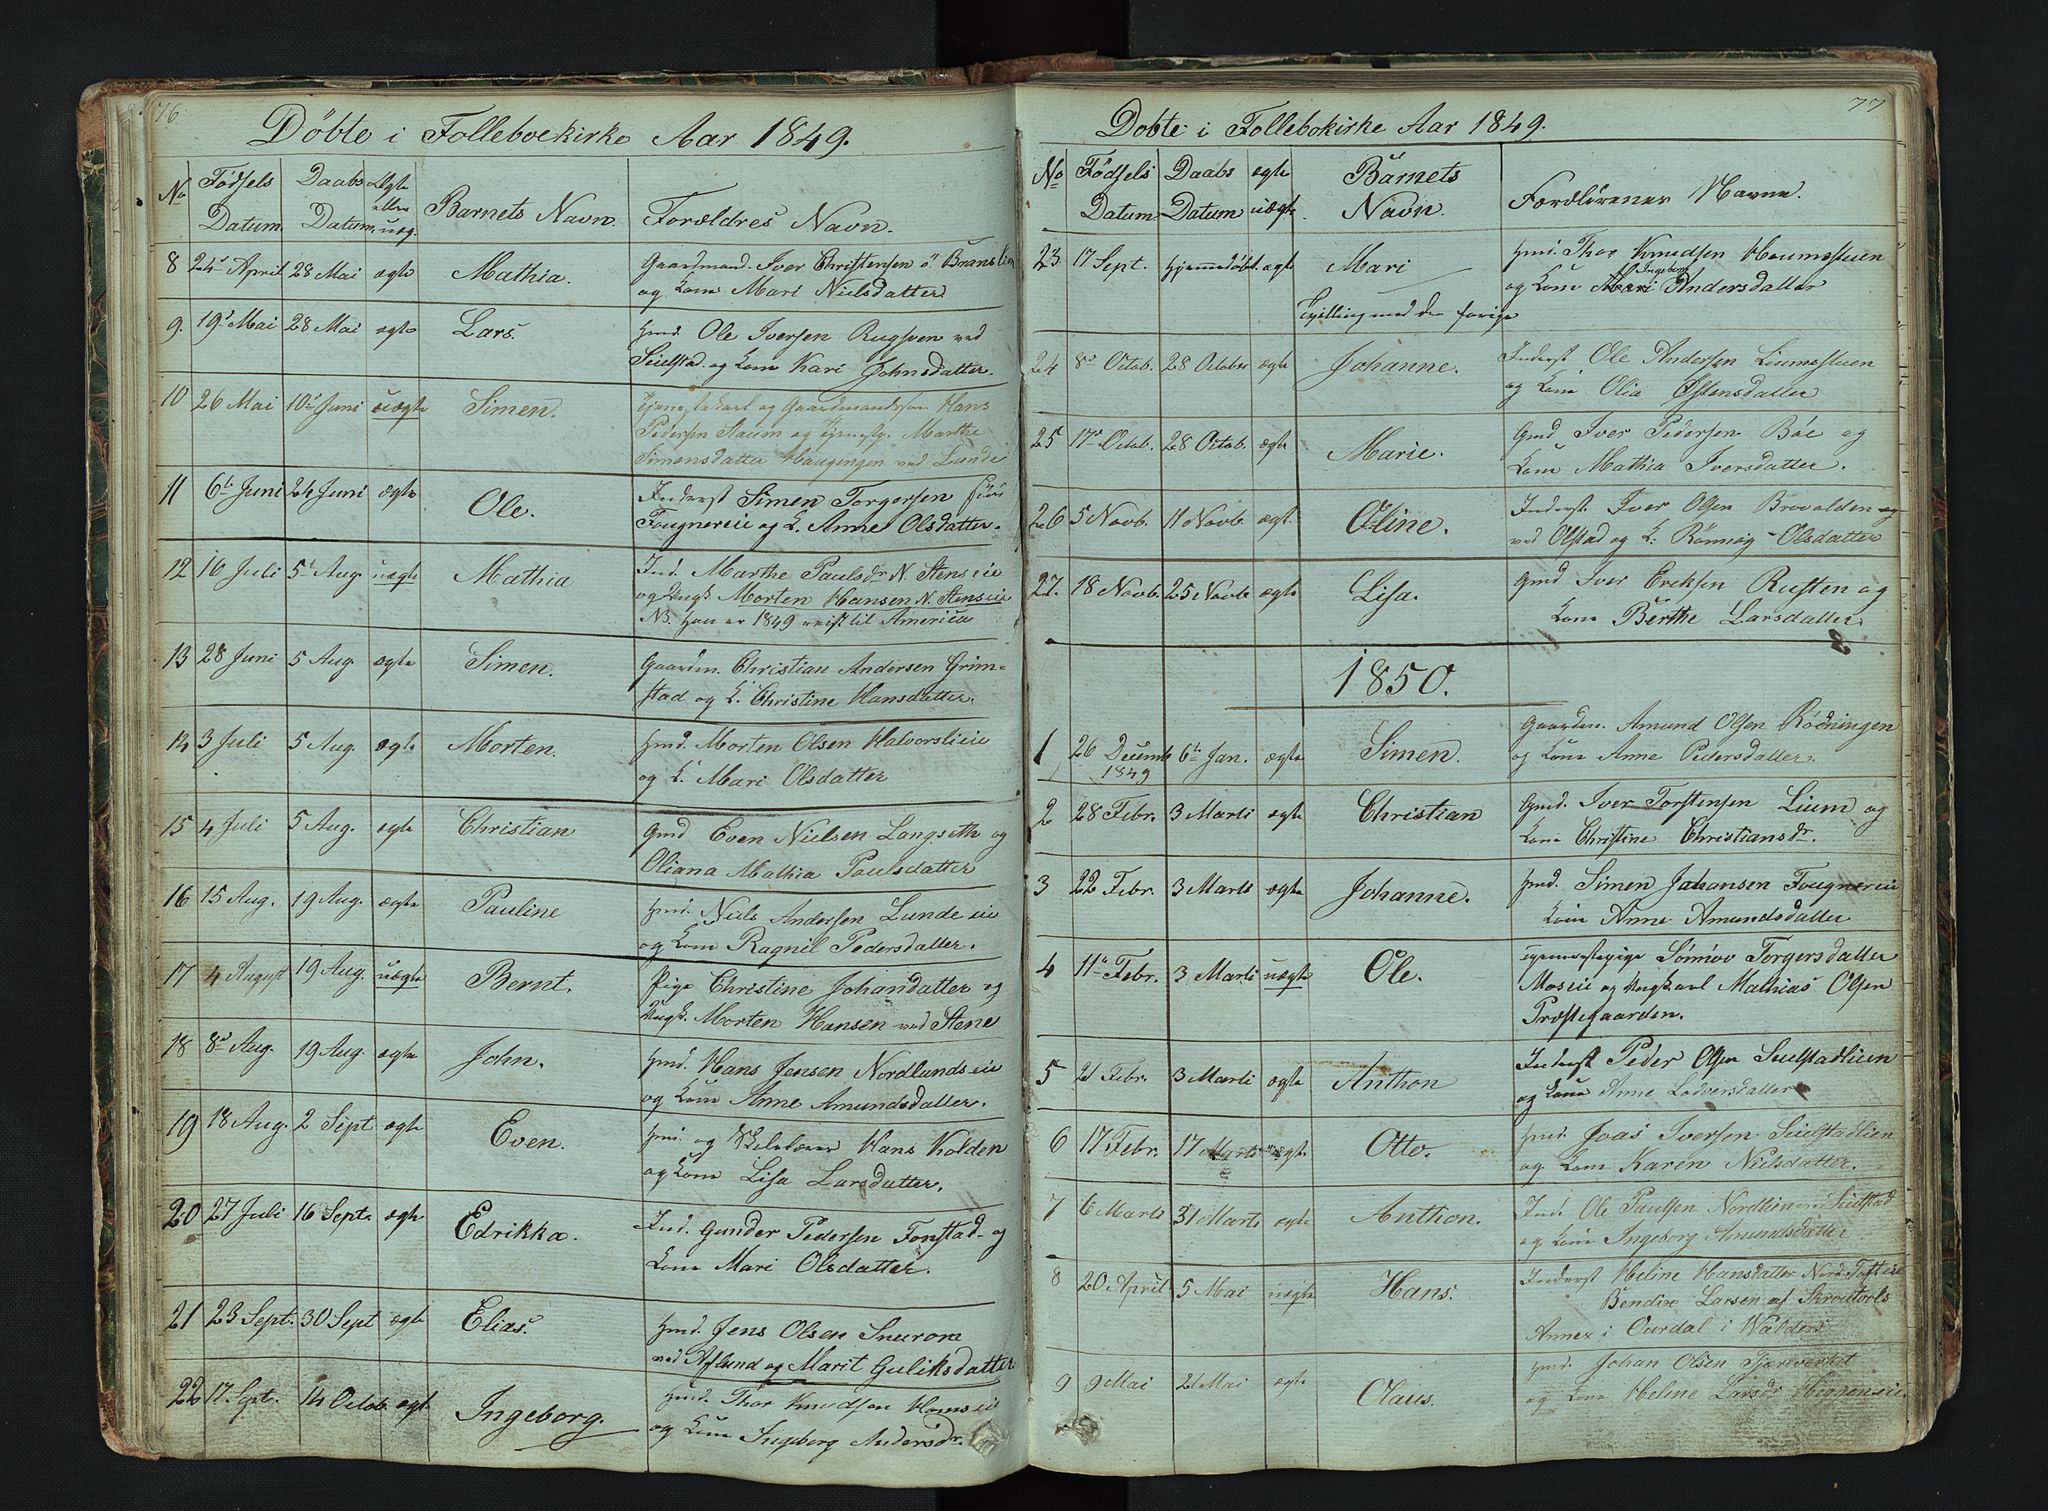 76
Döbte i Folleboekirke Aar 1849.
No Födsels Datum. Daabs Datum. Ægte eller uæg. Barnets Navn. Forældres Navn.
8 24 April 28 Mai ægte Mathia. Gaardmand. Iver Christensen
og Kone Mari Nielsdatter
9. 19 Mai 28 Mai ægte Lars. Hmd. Ole Iversen Rugsven ved
Seielstad og Kone Kari Johnsdatter.
10 26 Mai 10 Juni uægte Simen. Tjenestekarl og Gaardmandssøn Hans
Pedersen og Tjenestp. Marthe
Simensdatter Haugengen ved Lunde
11 6te Juni 24 Juni ægte Ole. Inderst Simen Torgersen
Fougnereie og K. Anne Olsdatter.
12 16 Juli 5t Aug. uægte Mathia Ind. Marthe Paulsdr N. Stenseie
og Ungk. Morten Hansen N. Stenseie
NB. Han er 1849 reist til America
13 28 Juni 5 Aug. ægte Simen. Gaardm. Christian Andersen Grim-
stad og K. Christine Hansdatter.
14 3 Juli 5 Aug. ægte Morten. Hmd. Morten Olsen Halvorslieie
og K. Mari Olsdatter
15 4 Juli 5 Aug. ægte Christian Gmd Even Nielsen Langseth og
Oliana Mathia Paulsdatter
16 15 Aug. 19 Aug. ægte Pauline Hmd. Niels Andersen Lundeeie
og Kone Ragnil Pedersdatter.
17 4 August 19 Aug. uægte Bernt. Pige Christine Johansdatter og
Ungk. Morten Hansen ved Stene
18 8d Aug. 19 Aug. ægte John. Hmd. Hans Jensen Nordlundseie
og Kone Anne Amundsdatter.
19 18 Aug. 2 Sept ægte Even. Hmd. og Skolelærer Hans Kolden
og Kone Lisa Larsdatter.
20 27 Juli 16 Sept. ægte Edrikka. Ind. Gunder Pedersen Fonstad og
Kone Mari Olsdatter.
21 23 Sept. 30 Sept ægte Elias. Hmd. Jens Olsen Snurom
ved Aflund og Marit Guliksdatter.
22 17 Sept. 14 Octob. ægte Ingeborg. Hmd. Thor Knudsen
og Kone Ingeborg Andersdr.
77
Dobte i Follebokirke Aar 1849.
No Födsels Datum Daabs Datum ægte uægte. Barnets Navn. Forældrenes Navne.
23. 17 Sept. hjemmedöbt ægte Mari Hmd. Thor Knudsen Houmsstuen
og Kone Mari Ingeborg Andersdatter
Tvilling med den forige
24 8d Octob. 28 October ægte Johanne. Inderst Ole Andersen Liumsstuen
og Kone Olia Ostensdatter
25 17d Octob. 28 Octob. ægte Marie. Gmd. Iver Pedersen Böe og
Kone Mathia Iversdatter.
26 5 Novb. 11 Novb. ægt. Oline. Inderst Iver Olsen Brovolden
ved Olstad og K: Rønnog Olsdatter
27. 18 Novb. 25 Novb ægte Lisa. Gmd Iver Eriksen Rusten og
Kone Berthe Larsdatter.
1850.
1 26 Decemb 1849 6te Jan. ægte Simen. Gaardm. Amund Olsen Rödningen
og Kone Anne Pedersdatter.
2 28 Febr. 3 Marti ægte Christian Gmd. Iver Torstensen Lium og
Kone Christine Christiansdr.
3 22 Febr. 3 Marts ægte Johanne. Hmd. Simen Johansen Fougnereie
Kone Anne Amundsdatter
4 11te Febr. 3 Marti uægte Ole. Tjenestepige Sönnov Torgersdatter
Moseie og Ungkarl Mathias Olsen
Præstegaarden.
5 21 Febr. 3 Marti ægte Anthon Inderst Peder Olsen Seielstadlien
og Kone Anne Lodversdatter
6 17 Febr. 17 Marts ægte Otto. Hmd. Joas Iversen Seielstadlien
og Kone Karen Nielsdatter.
7 6 Marts 31 Marts ægte Anthon. Ind: Ole Paulsen Nordlien Seielstad
og Kone Ingeborg Amundsdatter
8 20 April 5 Mai uægte Hans. Inderst Heline Hansdatter
Bendix Larsen af
Annex i Ourdal i Walders
9 9 Mai 21 Mai ægte Olaus. Hmd. Johan Olsen
og Kone Heline Larsdr